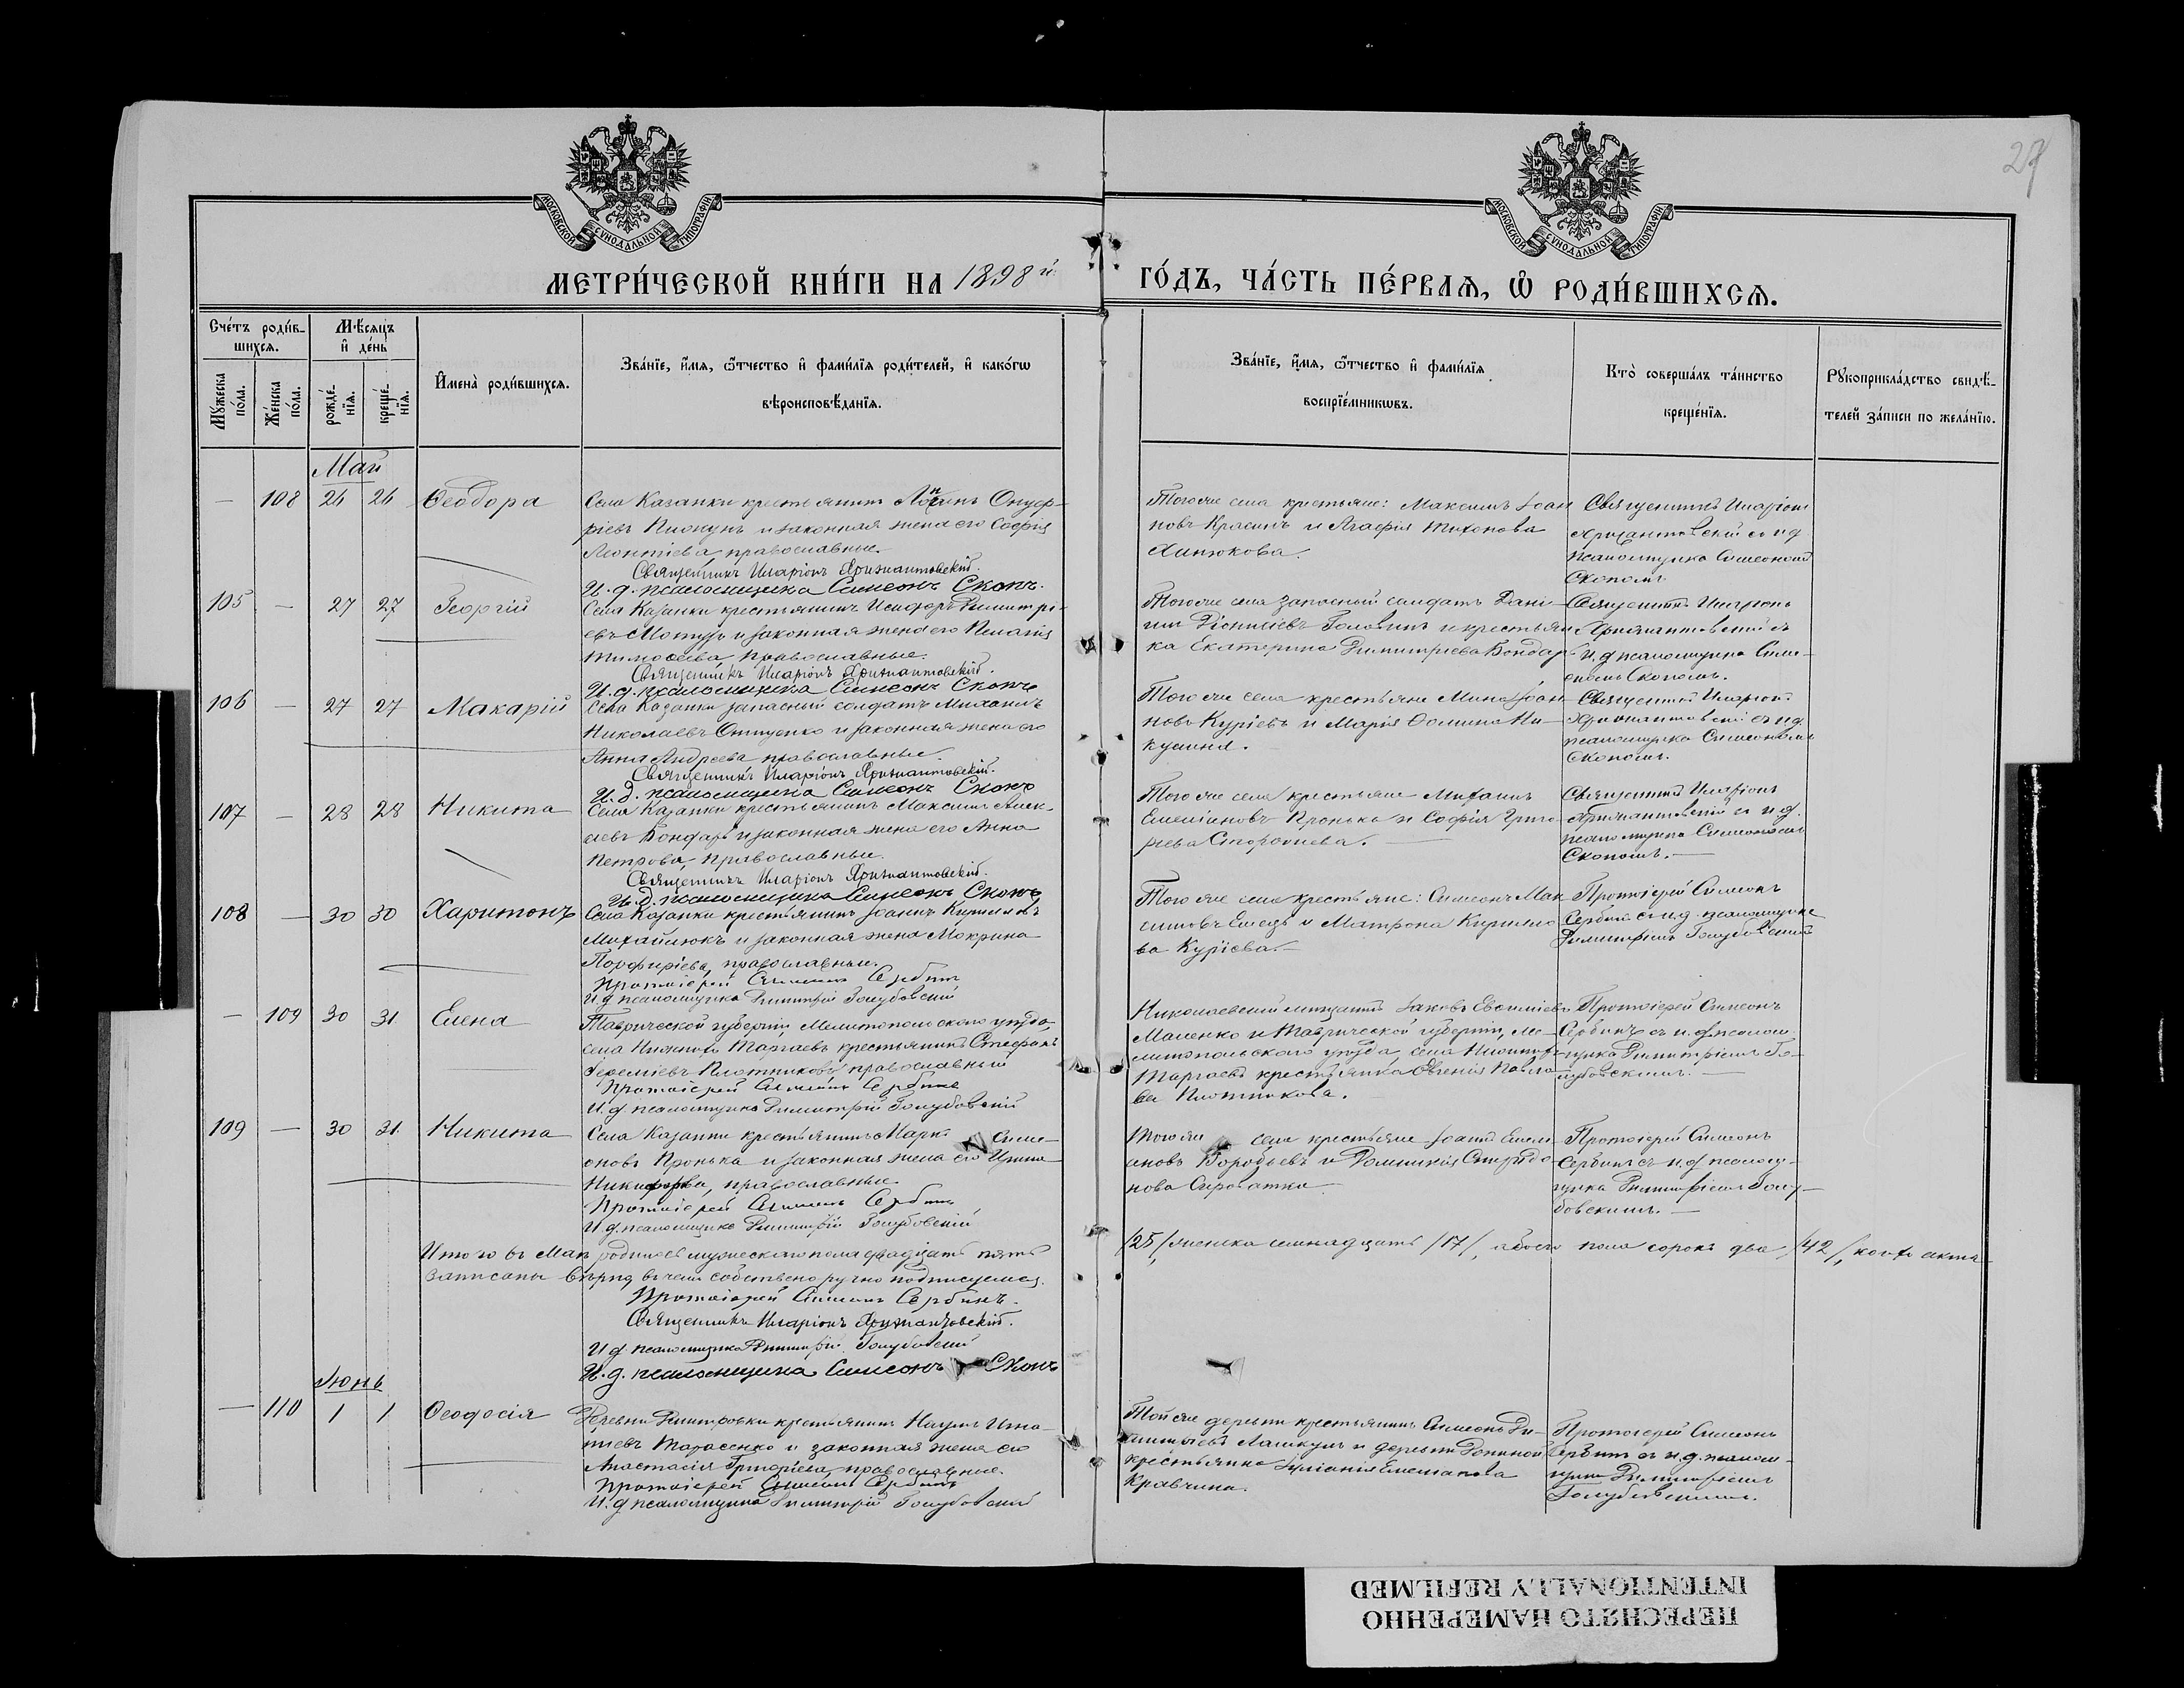 27
МОСКОВСКОЙ СУНОДАЛЬНОЙ ТИПОГРАФІИ
МОСКОВСКОЙ СУНОДАЛЬНОЙ ТИПОГРАФІИ
МЕТРИ́ЧЕСКОЙ КНИ́ГИ НА 1898 й
ГО́ДЪ, ЧА́СТЬ ПЕ́РВАѦ, Ѡ РОДИ́ВШИХСѦ.
Сче́тъ роди́в-
шихсѧ.
Мꙋжеска по́ла.
Же́нска по́ла.
Мѣ́сѧцъ
и҆ де́нь
рожде́-
нїѧ.
креще́-
нїѧ.
И҆мена̀ роди́вшихсѧ.
Зва́нїе, и҆́мѧ, ѻ҆́тчество и҆ фами́лїѧ роди́телей, и҆ како́гѡ
вѣроисповѣ́данїѧ.
Зва́нїе, и҆́мѧ, ѻ҆́тчество и҆ фами́лїѧ
воспрїе́мникѡвъ.
Кто̀ соверша́лъ та́инство
креще́нїѧ.
Рꙋкоприкла́дство свидѣ́-
телей за́писи по жела́нїю.
Май
— 108 26 26 Ѳеодора
Села Казанки крестьянинъ Логинъ Онуф-
ріевъ Пиокунъ и законная жена его Софія
Леонтіева, православные.
Священникъ Иларіонъ Хризантовскій.
И. д. псаломщика Симеонъ Скопъ.
Того же села крестьяне: Максимъ Іоан
новъ Красинъ и Агафія Тихонова
Хинюкова.
Священникъ Иларіонъ
Хризантовскій съ и д
псаломщика Симеономъ
Скопомъ.
105 — 27 27 Георгій
Села Казанки крестьянинъ Исидоръ Димитрі-
евъ Мотузъ и законная жена его Пелагія
Тимоѳеева, православные.
Священникъ Иларіонъ Хризантовскій.
И. д. псаломщика Симеонъ Скопъ
Того же села запасный солдатъ Дани-
илъ Діонисіевъ Головинъ и крестьян
ка Екатерина Димитріева Бондар
Священникъ Иларіонъ
Хризантовскій съ
и. д псаломщика Симе-
ономъ Скопомъ.
106 — 27 27 Макарій
Села Казанки запасный солдатъ Михаилъ
Николаевъ Онищенко и законная жена его
Анна Андреева, православные.
Священникъ Иларіонъ Хризантовскій.
И. д. псаломщика Симеонъ Скопъ
Того же села крестьяне Мина Іоан
новъ Куріевъ и Марія Ѳомина Ни-
кулина.
Священникъ Иларіонъ
Хризантовскій съ и д
псаломщика Симеономъ
Скопомъ.
107 — 28 28 Никита
Села Казанки крестьянинъ Максимъ Алек-
сіевъ Бондарь и законная жена его Анна
Петрова, православные.
Священникъ Иларіонъ Хризантовскій.
И. д. псаломщика Симеонъ Скопъ
Того же села крестьяне Михаилъ
Емеліановъ Пронька и Софія Григо
ріева Сторожева.
Священникъ Иларіонъ
Хризантовскій съ и д.
псаломщика Симеономъ
Скопомъ.
108 — 30 30 Харитонъ
Села Казанки крестьянинъ Іоаннъ Кирилловъ
Михайлюкъ и законная жена Мокрина
Порфиріева, православные.
Протоіерей Симеонъ Сербинъ
И д псаломщика Димитрій Голубовскій
Того же села крестьяне: Симеонъ Мак
симовъ Емецъ и Матрона Кирилло
ва Куріева.
Протоіерей Симеонъ
Сербинъ съ и д псаломщика
Димитріемъ Голубовскимъ
— 109 30 31 Елена
Таврической губерніи, Мелитопольскаго уѣзда,
села Нижнихъ Торгаевъ крестьянинъ Стефанъ
Іереміевъ Плотниковъ православный
Протоіерей Симеонъ Сербинъ
И. д. псаломщика Димитрій Голубовскій
Николаевскій мѣщанинъ Іаковъ Евѳиміевъ
Маленко и Таврической губерніи, Ме-
литопольскаго уѣзда, села Нижнихъ
Торгаевъ крестьянка Евгенія Павло
ва Плотникова.
Протоіерей Симеонъ
Сербинъ съ и. д. псалом
щика Димитріемъ Го-
лубовскимъ.
109 — 30 31 Никита
Села Казанки крестьянинъ Маркъ Симе-
оновъ Пронька и законная жена его Ирина
Никифорова, православные.
Протоіерей Симеонъ Сербинъ
И. д. псаломщика Димитрій Голубовскій
Того же села крестьяне Іоаннъ Емели
ановъ Воробьевъ и Домникія Спиридо-
нова Сыроватка
Протоіерей Симеонъ
Сербинъ съ и. д. псалом-
щика Димитріемъ Голу-
бовскимъ.
Итого въ Маѣ родилось мужескаго пола двадцать пять /25/, женска семнадцать /17/, обоего пола сорокъ два /42/, кои акта
записаны вѣрно въ чемъ собственоручно подписуемся.
Протоіерей Симеонъ Сербинъ.
Священникъ Иларіонъ Хризантовскій.
И д псаломщика Димитрій Голубовскій
И. д. псаломщика Симеонъ Скопъ
Іюнь
— 110 1 1 Ѳеодосія
Деревни Дмитровки крестьянинъ Наумъ Игна-
тіевъ Тарасенко и законная жена его
Анастасія Григоріева, православные.
Протоіерей Симеонъ Сербинъ
И. д псаломщика Димитрій Голубовскій
Той же деревни крестьянинъ Симеонъ Ди-
митріевъ Лашкулъ и деревни
крестьянка Іуліанія Емеліанова
Кравчина.
Протоіерей Симеонъ
Сербинъ съ и. д. псалом-
щика Димитріемъ
Голубовскимъ.
ПЕРЕСНЯТО НАМЕРЕННО
INTENTIONALLY REFILMED